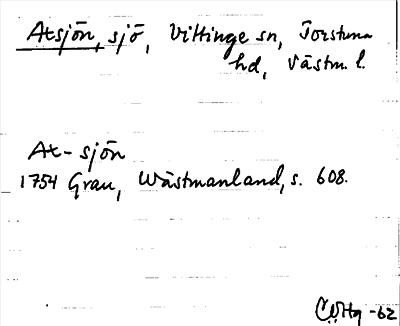 Atsjön, sjö, Vittinge sn, Torstuna
hd, Västm. l.
At-sjön
1754 Grau, Wästmanland, s. 608.
-62